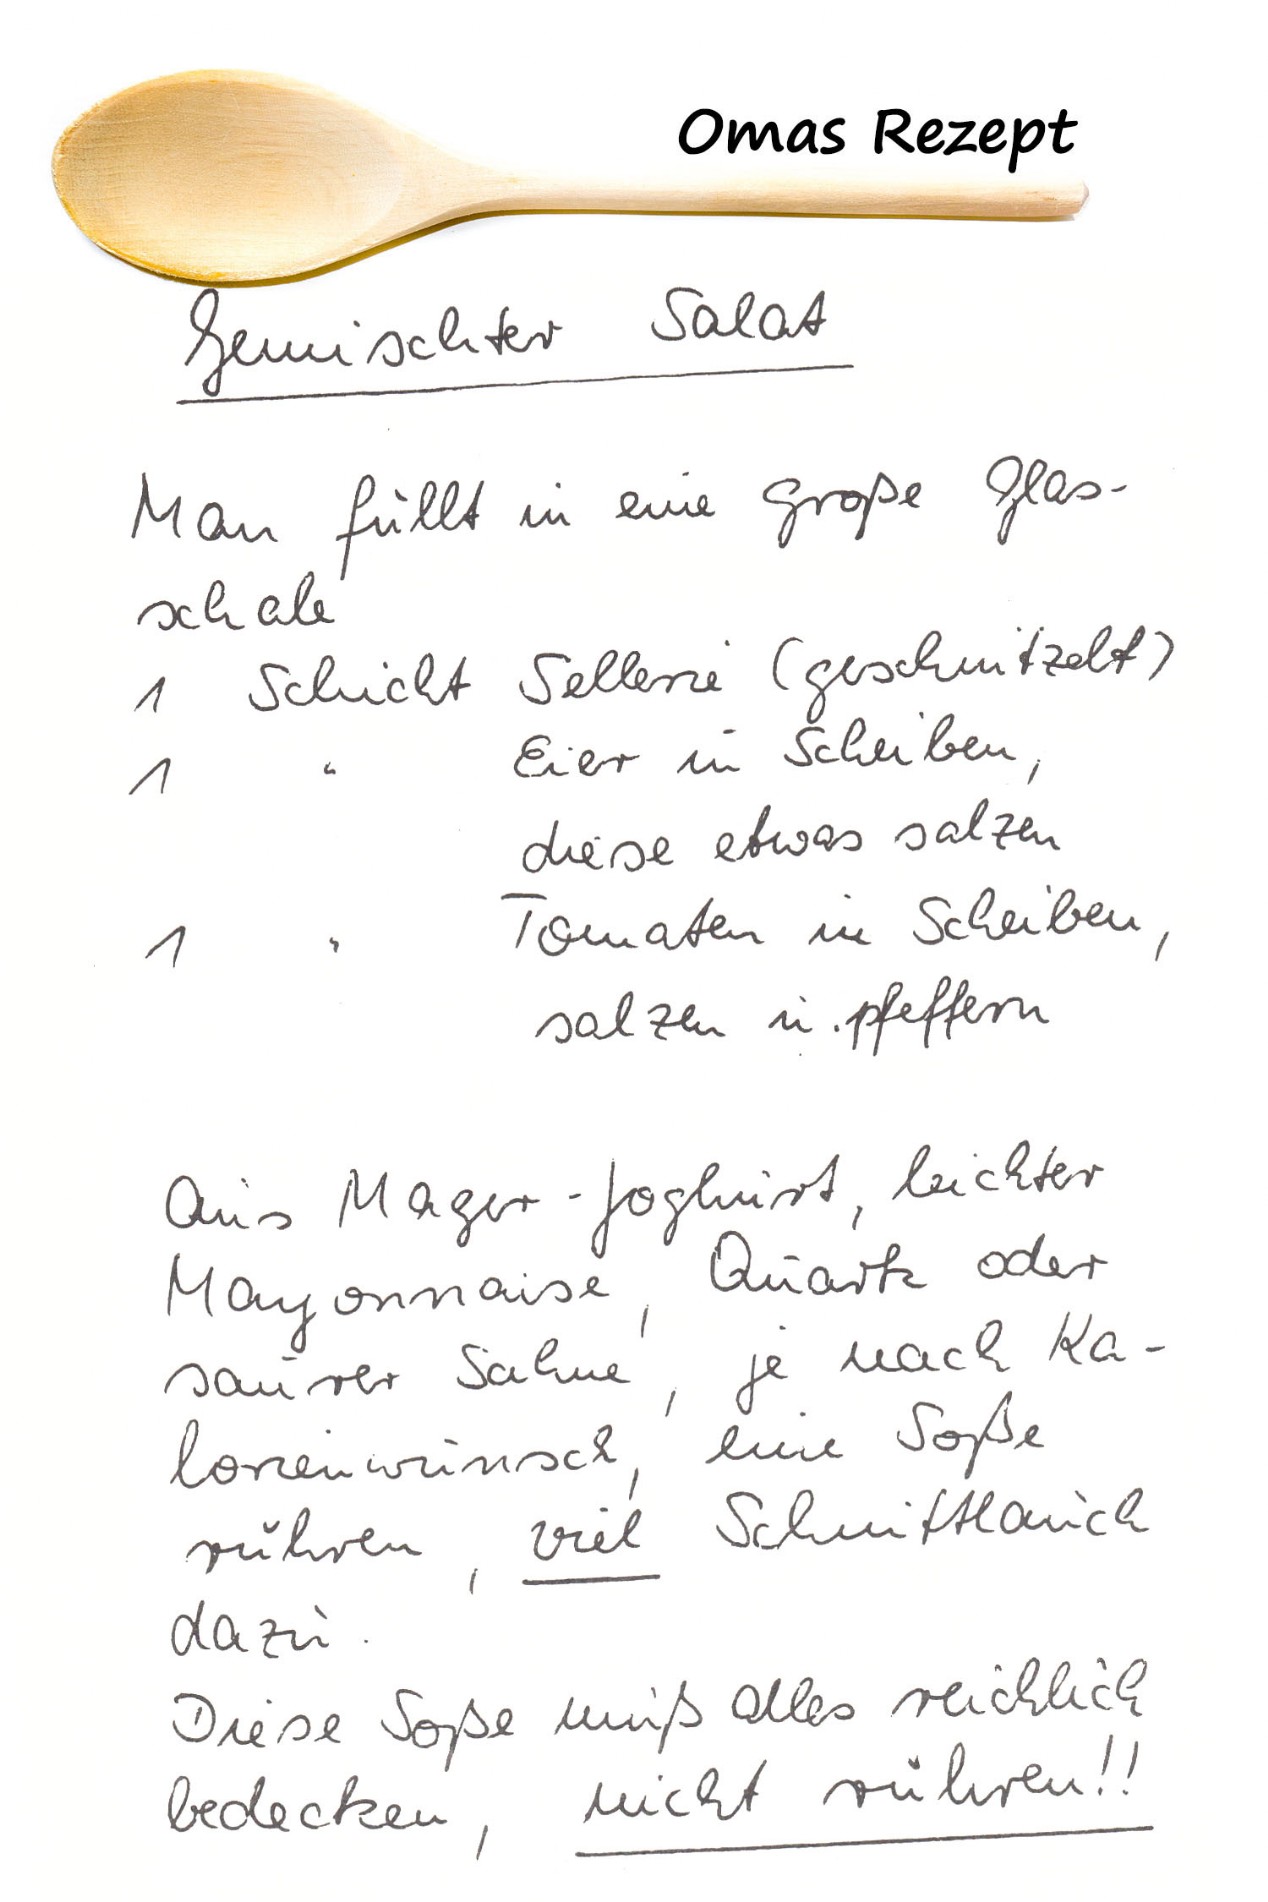 Omas Rezept
Gemischter Salat
Man füllt in eine große Glas-
schale
1 Schicht Sellerie (geschnitzelt)
1 " Eier in Scheiben,
diese etwas salzen
1 " Tomaten in Scheiben,
salzen u. pfeffern
Aus Mager-Joghurt, leichter
Mayonnaise, Quark oder
saurer Sahne, je nach Ka-
lorienwunsch, eine Soße
rühren, viel Schnittlauch
dazu.
Diese Soße muß alles reichlich
bedecken, nicht rühren!!